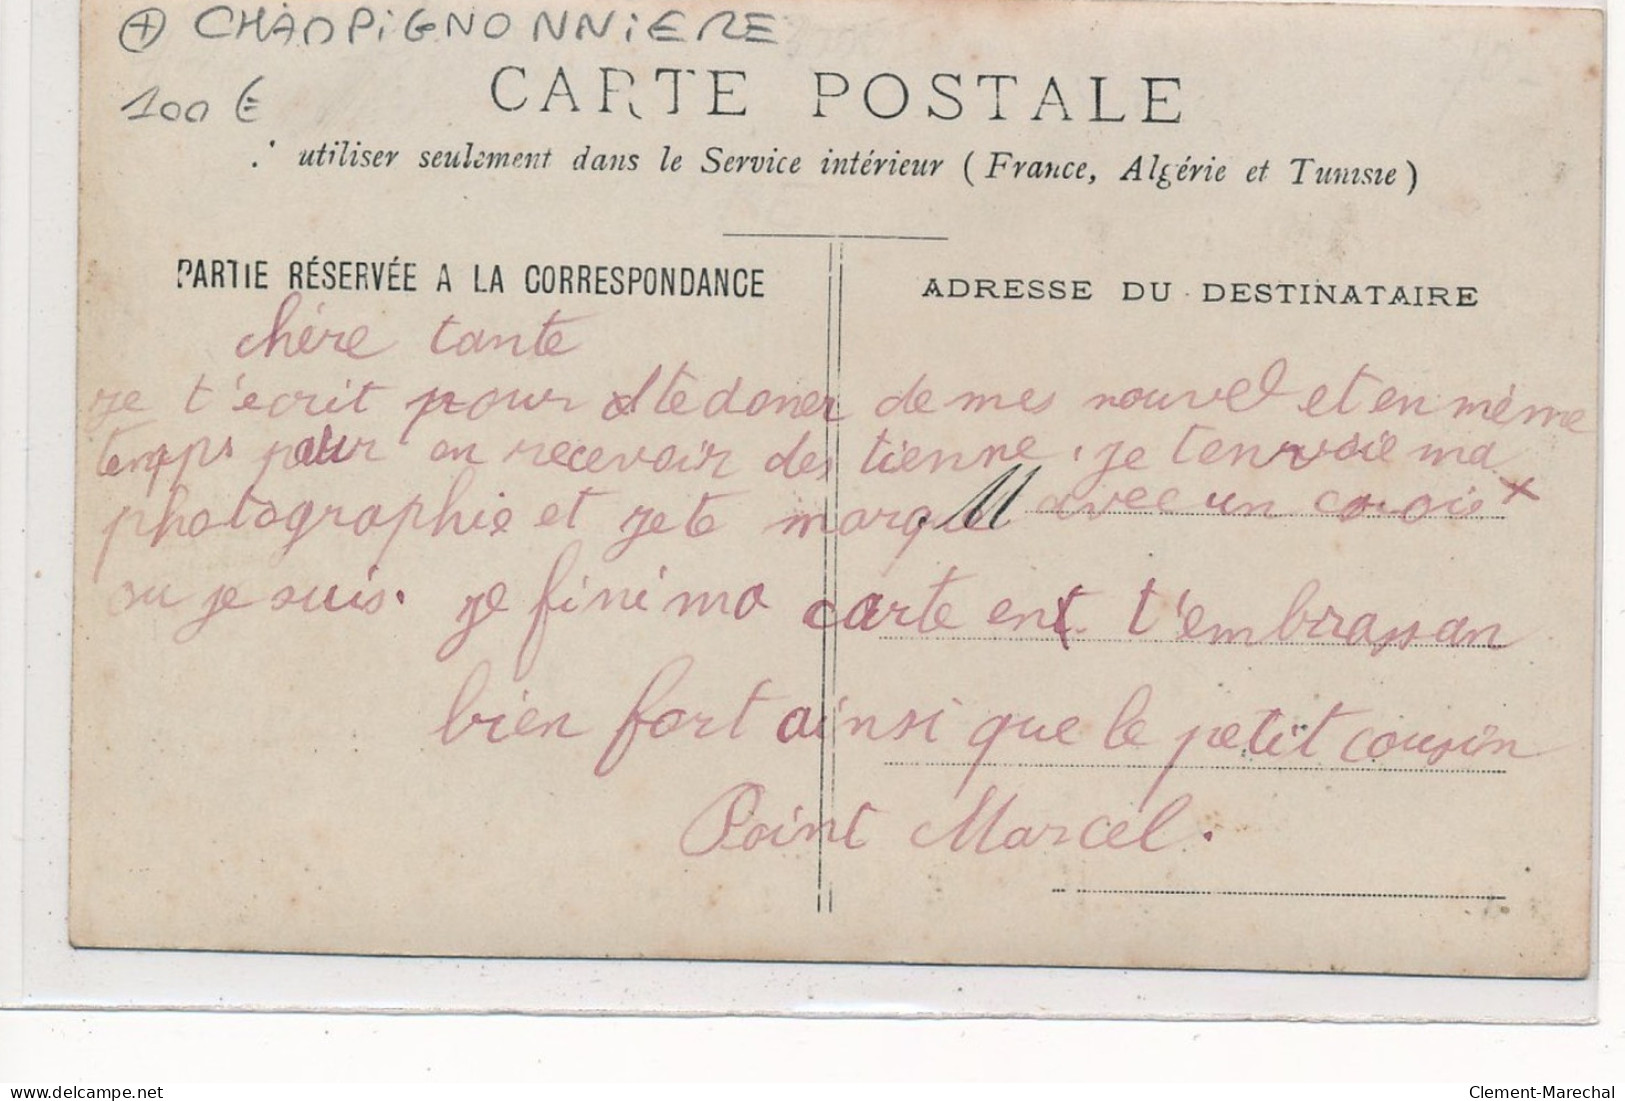 + CHAMPIGNONNIERE
100 €
CARTE POSTALE
utiliser seulement dans le Service intérieur (France, Algérie et Tunisie)
PARTIE RÉSERVÉE A LA CORRESPONDANCE
ADRESSE DU DESTINATAIRE
chère tante
je t'écrit pour te doner de mes nouvel et en mème
temps pour en recevoir des tienne. je tenvoie ma
photographie et je te marque M avec un croix x
ou je suis. je fini ma carte en t'embrassan
bien fort ainsi que le petit cousin
Point Marcel.
delcampe.net
Clement-Marechal